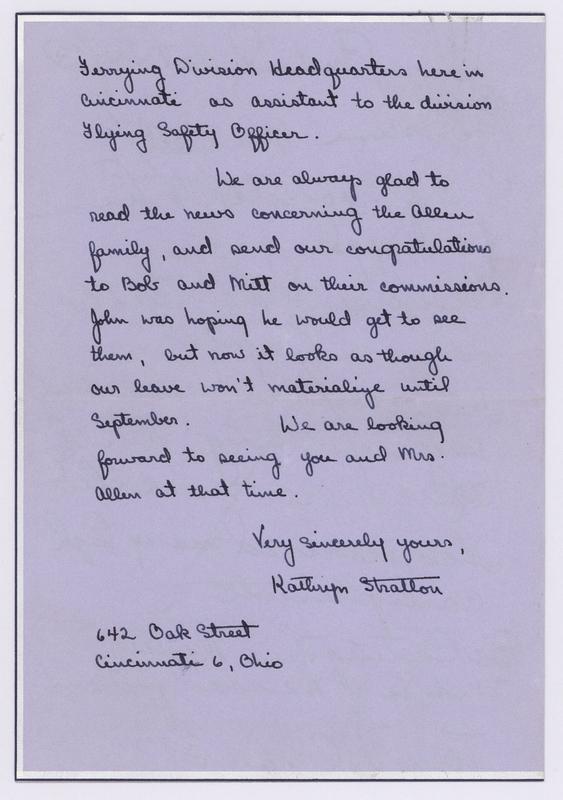 Ferrying Division Headquarters here in
Cincinnati as assistant to the division
Flying Safety Officer.
We are always glad to
read the news concerning the Allen
family, and send our congratulations
to Bob and Mitt on their commissions.
John was hoping he would get to see
them, but now it looks as though
our leave won't materialize until
September. We are looking
forward to seeing you and Mrs.
Allen at that time.
Very sincerely yours,
Kathryn Stratton
642 Oak Street
Cincinnati 6, Ohio